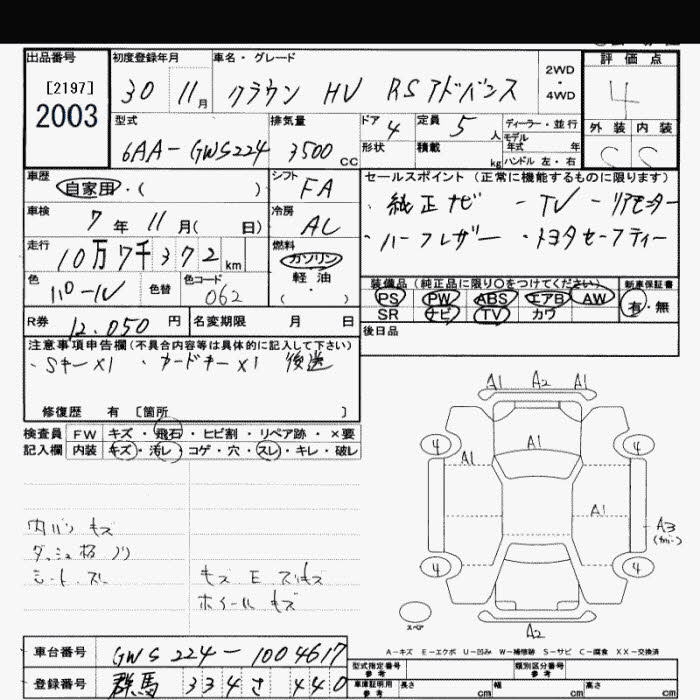 出品番号 初度登録年月 車名・グレード 2WD・4WD 評価点
[2197]
2003
30 11月 クラウン HV RSアドバンス 4
型式 排気量 ドア 4 定員 5人 ディーラー・並行 外装 内装
6AA-GWS224 3500cc 形状 積載 kg モデル年式 年 ハンドル 左・右 C C
車歴 自家用・( ) シフト FA セールスポイント(正常に機能するものに限ります)
車検 7年 11月( 日) 冷房 AC ・純正ナビ ・TV ・リアモニター
走行 10万7千372km 燃料 ガソリン 軽油 ( ・ ) ・ハーフレザー ・トヨタセーフティー
色 パール 色替 色コード 062 装備品(純正品に限り○をつけてください) 新車保証書
PS PW ABS エアB AW 有・無
SR ナビ TV カワ
R券 12,050円 名変期限 月 日 後日品
注意事項申告欄(不具合内容等は具体的に記入して下さい)
・Sキー×1 ・カードキー×1 後送
修復歴 有 [箇所 ]
検査員 FW キズ・飛石・ヒビ割・リペア跡・×要
記入欄 内装 キズ・汚レ・コゲ・穴・スレ・キレ・破レ
A1 A2 A1
4 A1 4
A1
A1 A3
4 4
スペア A2
内バン キズ
ダッシュ ノリ
シート スレ キズ E スリキズ
ホイール キズ
A-キズ E-エクボ U-凹み W-補修跡 S-サビ C-腐食 XX-交換済
車台番号 GWS224-1004617 型式指定番号 参考 類別区分番号 参考
登録番号 群馬 334 さ 440 車庫証明用 参考 長さ cm 幅 cm 高さ cm